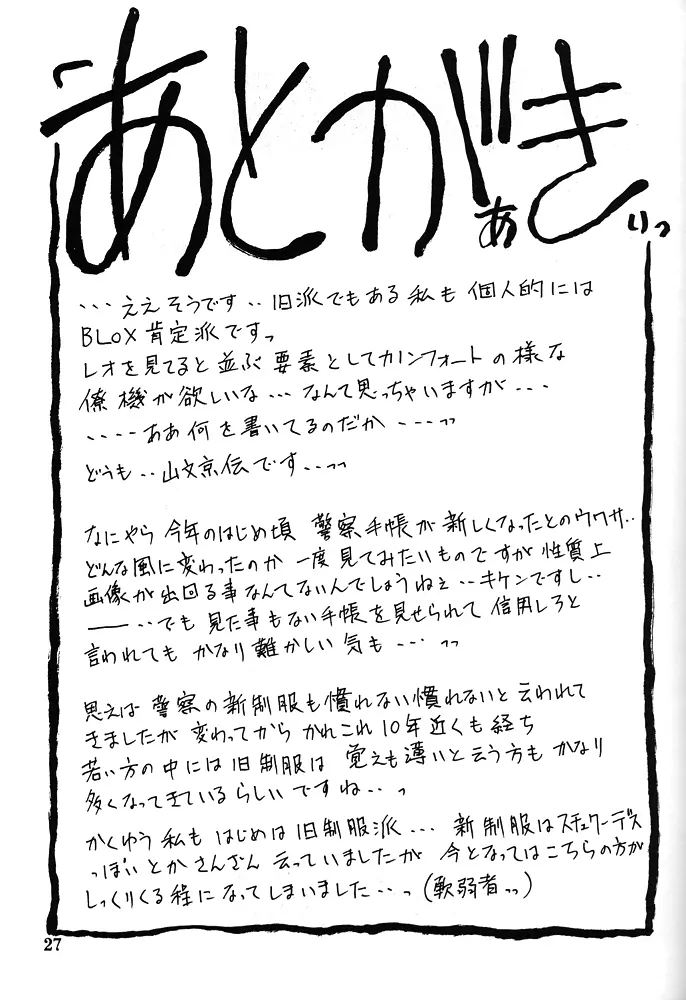 あとがき
ぁ
ぃっ
・・・ええそうです・・旧派でもある私も 個人的には
BLOX肯定派ですっ
レオを見てると並ぶ要素としてカノンフォートの様な
僚機が欲しいな・・・なんて思っちゃいますが・・・
・・・・ああ何を書いてるのだか ・・・っっ
どうも・・山文京伝です・・っっ
なにやら今年のはじめ頃 警察手帳が新しくなったとのウワサ・・
どんな風に変わったのか 一度見てみたいものですが 性質上
画像が出回る事なんてないんでしょうねぇ・・キケンですし・・
――・・でも 見た事もない手帳を見せられて 信用しろと
言われても かなり難かしい気も・・・ っっ
思えば 警察の新制服も慣れない慣れないと云われて
きましたが 変わってから かれこれ10年近くも経ち
若い方の中には旧制服は 覚えも薄いと云う方も かなり
多くなってきているらしいですね・・っ
かくゆう私も はじめは旧制服派・・・ 新制服はスチュワーデス
っぽいとかさんざん云っていましたが 今となってはこちらの方が
しっくりくる程になってしまいました・・っ(軟弱者っっ)
27